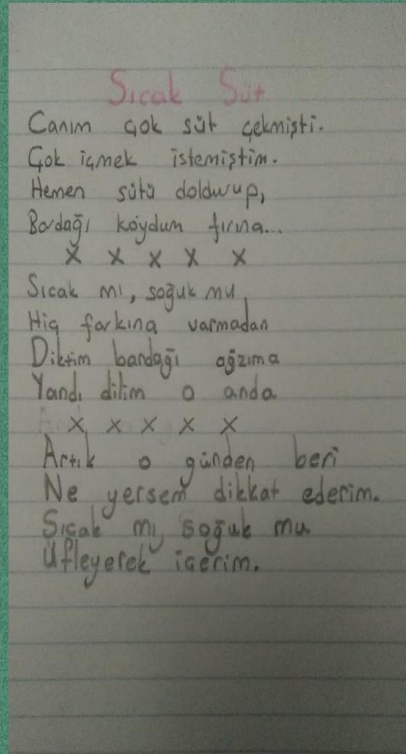 Sıcak Süt
Canım çok süt çekmişti.
Çok içmek istemiştim.
Hemen sütü doldurup,
Bardağı koydum fırına...
X X X X X
Sıcak mı, soğuk mu,
Hiç farkına varmadan
Diktim bardağı ağzıma
Yandı dilim o anda
X X X X X
Artık o günden beri
Ne yersem dikkat ederim.
Sıcak mı, soğuk mu
Üfleyerek içerim.